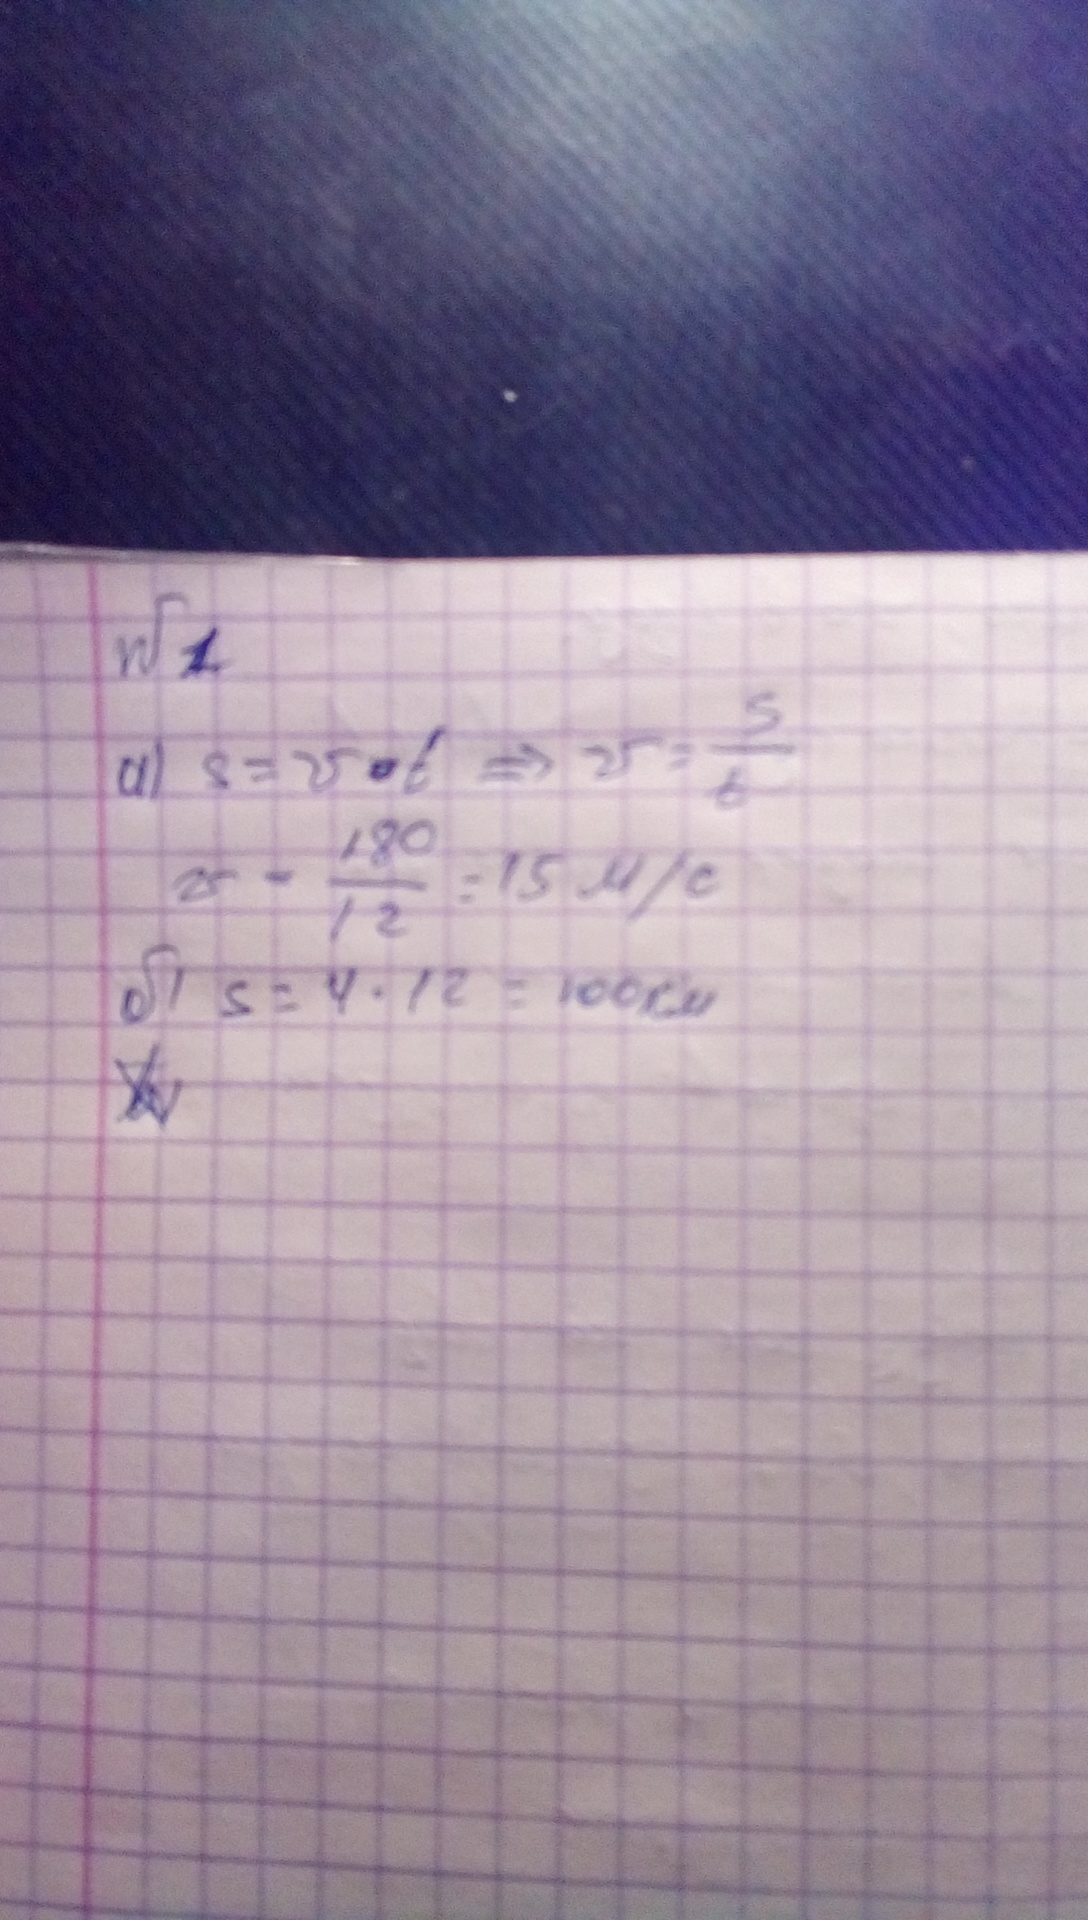 №1
а) s = v • t ⇒ v = s/t
v = 180/12 = 15 м/с
б) s = 4 · 12 = 100км